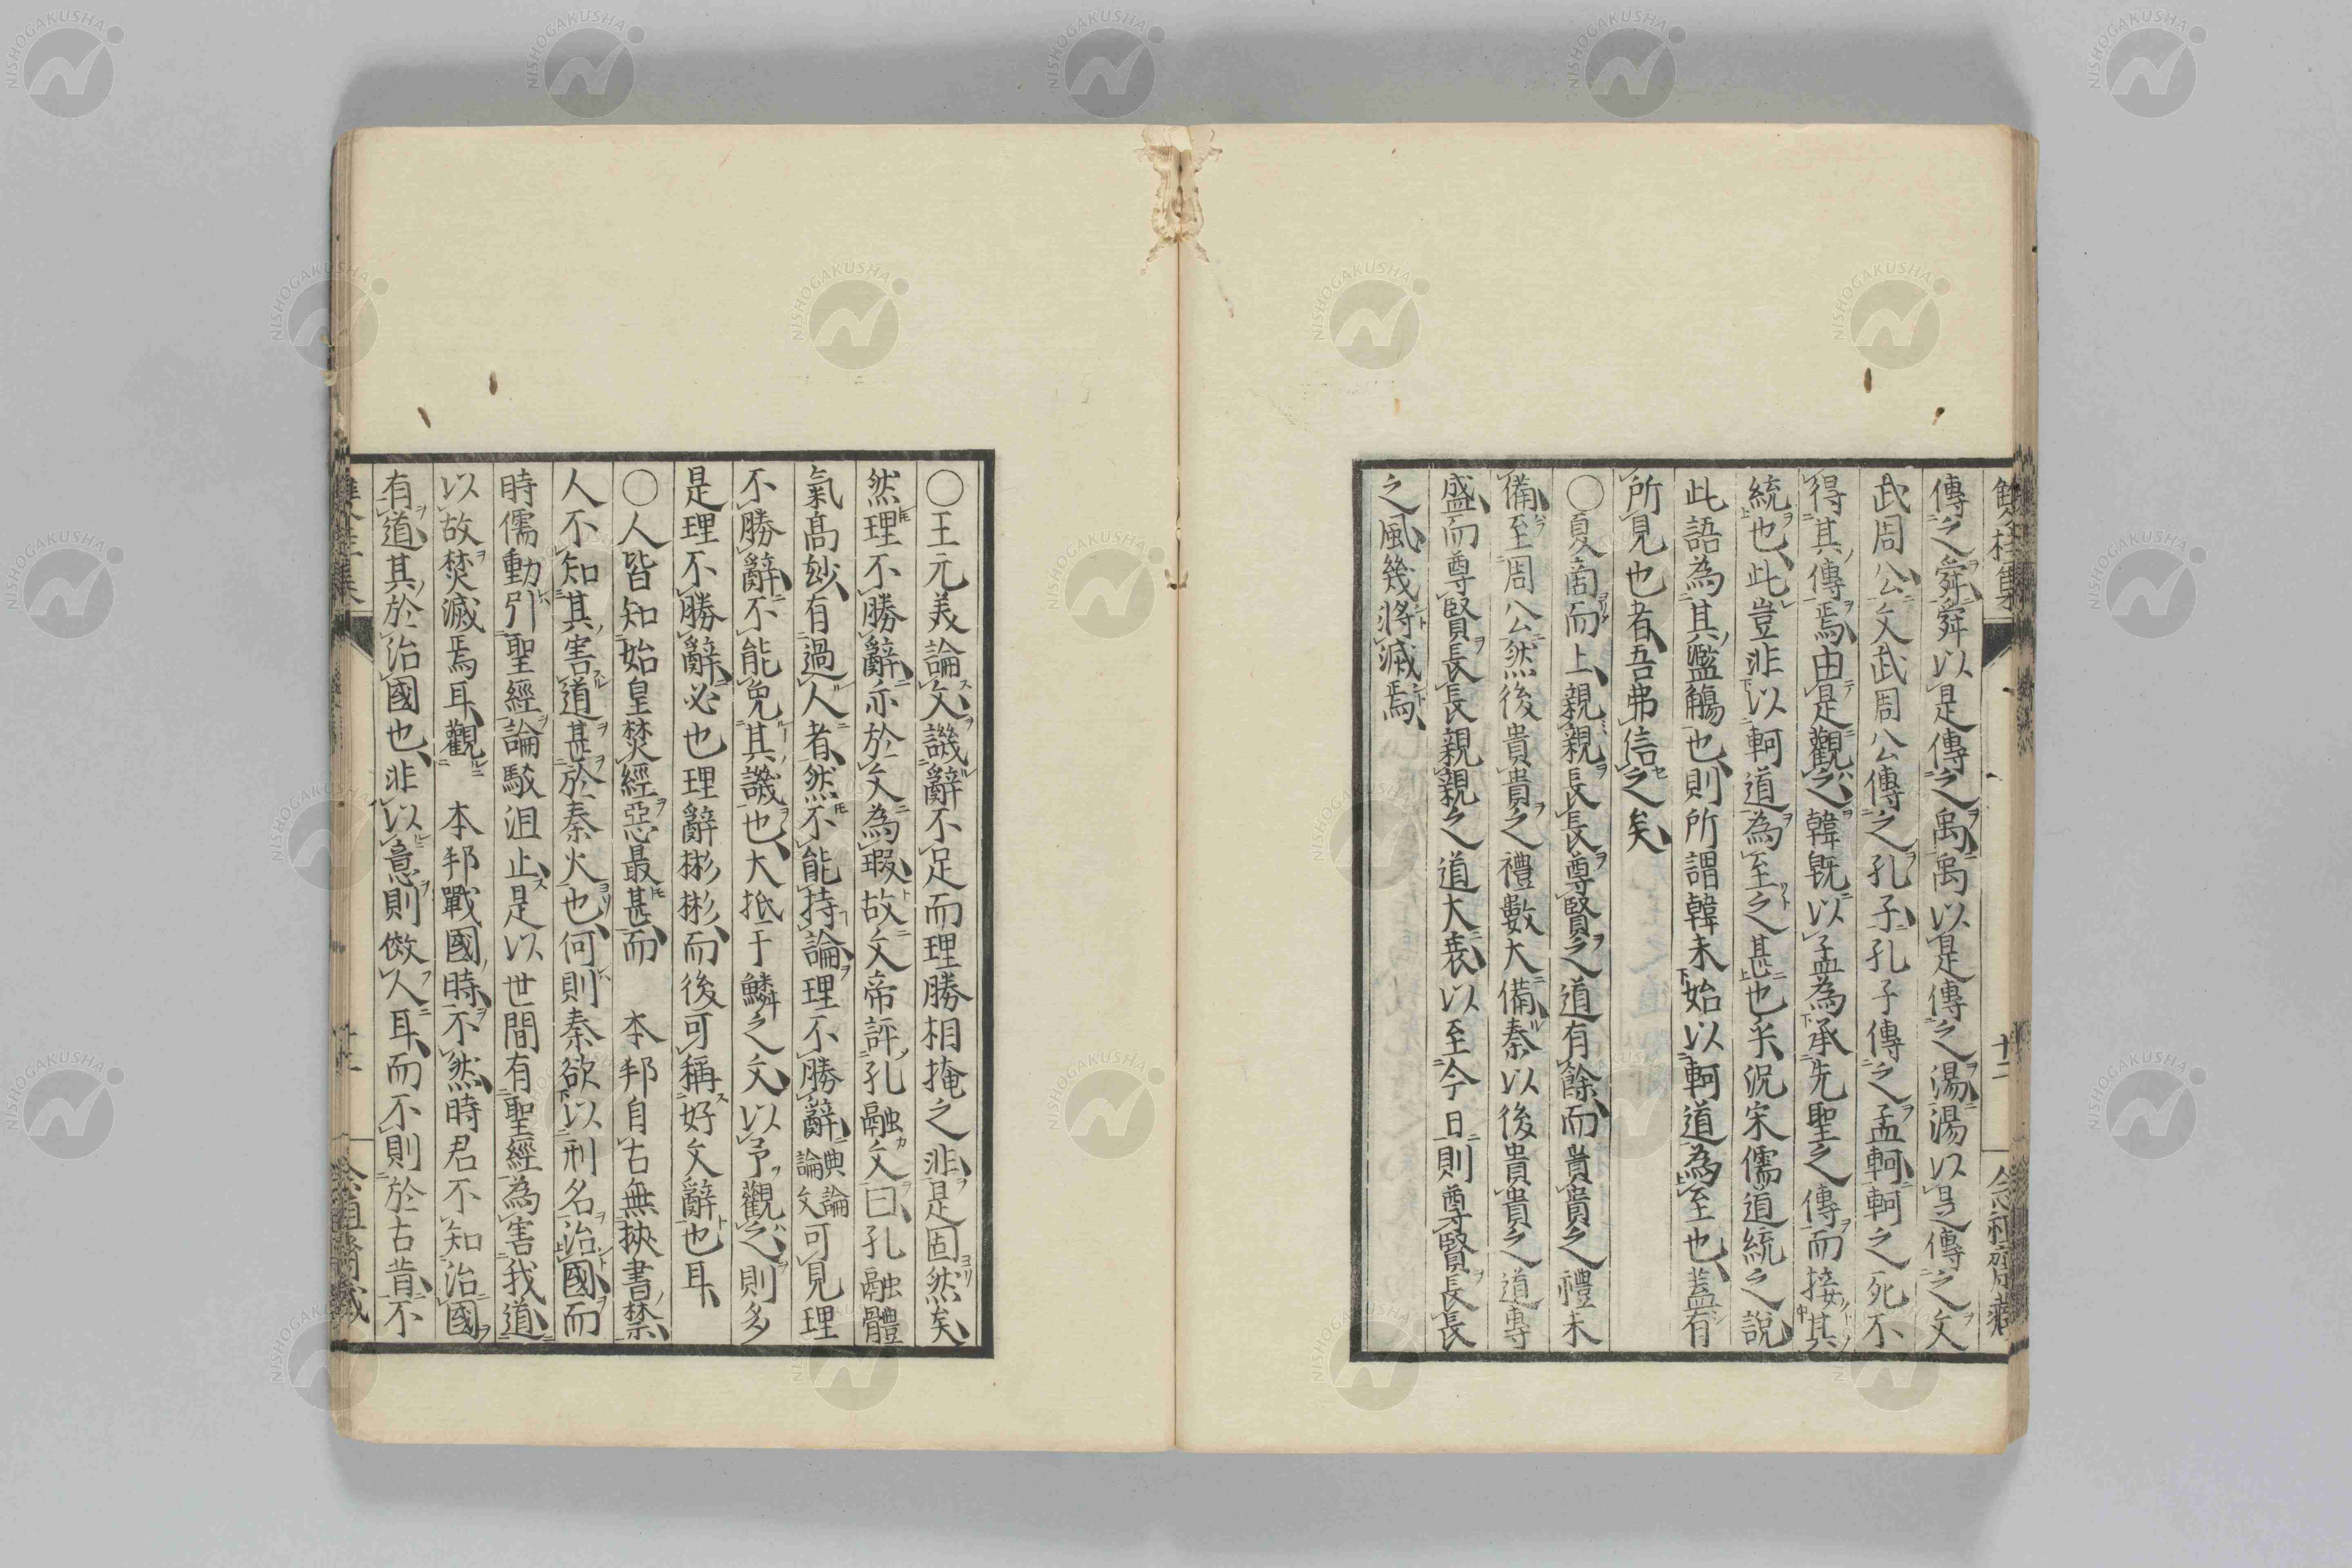 傳之舜舜以是傳之禹禹以是傳之湯湯以是傳之文
武周公文武周公傳之孔子孔子傳之孟軻軻之死不
得其傳焉由是觀之韓既以孟為承先聖之傳而接其
統也此豈非以軻道為至之甚也乎況宋儒道統之說
此語為其濫觴也則所謂韓未始以軻道為至也蓋有
所見也者吾弗信之矣
○夏商而上親親長長尊賢之道有餘而貴貴之禮未
備至周公然後貴貴之禮數大備秦以後貴貴之道專
盛而尊賢長長親親之道大衰以至今日則尊賢長長
之風幾將滅焉
○王元美論文譏辭不足而理勝相掩之非是固然矣
然理不勝辭亦於文為瑕故文帝評孔融文曰孔融體
氣高玅有過人者然不能持論理不勝辭典論論文可見理
不勝辭不能免其譏也大抵于鱗之文以予觀之則多
是理不勝辭必也理辭彬彬而後可稱好文辭也耳
○人皆知始皇焚經惡最甚而　本邦自古無挾書禁
人不知其害道甚於秦火也何則秦欲以刑名治國而
時儒動引聖經論駮沮止是以世間有聖經為害我道
以故焚滅焉耳觀　本邦戰國時不然時君不知治國
有道其於治國也非以意則倣人耳而不則於古昔不
NISHOGAKUSHA